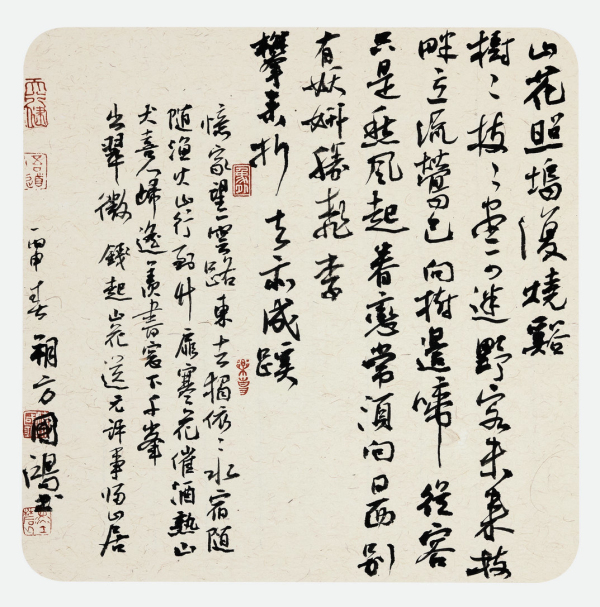 山花照塢復燒谿
樹〻枝〻盡可迷野客未來枝
畔立流鶯已向樹邊啼從容
只是愁風起眷戀常須向日西別
有妖妍勝桃李
攀來折去亦成蹊
憶家望雲路東去獨依〻水宿随
随渔火山行到竹扉寒花催酒熟山
犬喜人歸遙羨書窓下千峯
出翠微 錢起山花送元評事歸山居
丙申春朔方國鴻书
天行健